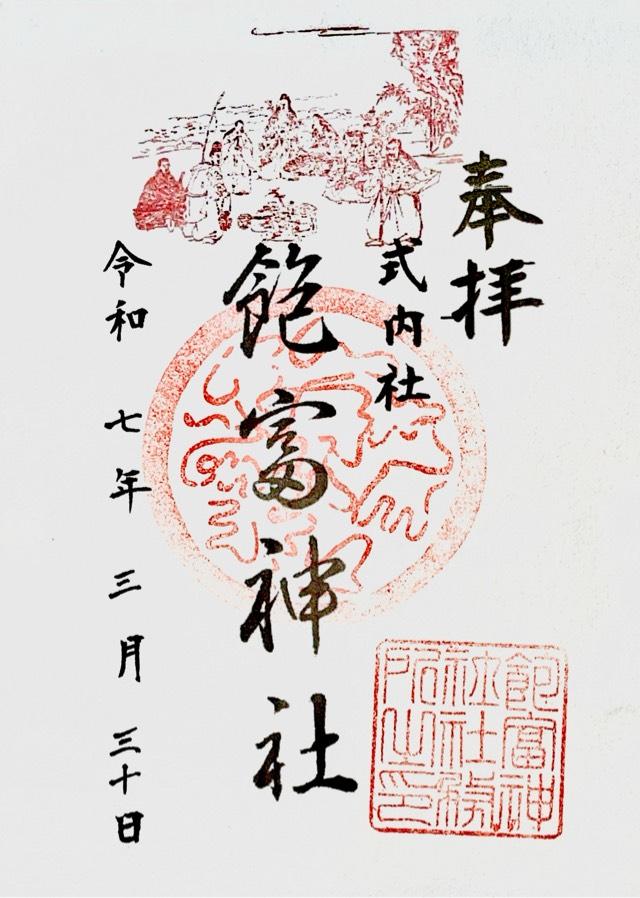 奉拝
式内社
飽富神社
令和七年三月三十日
飽富神
社社務
所之印